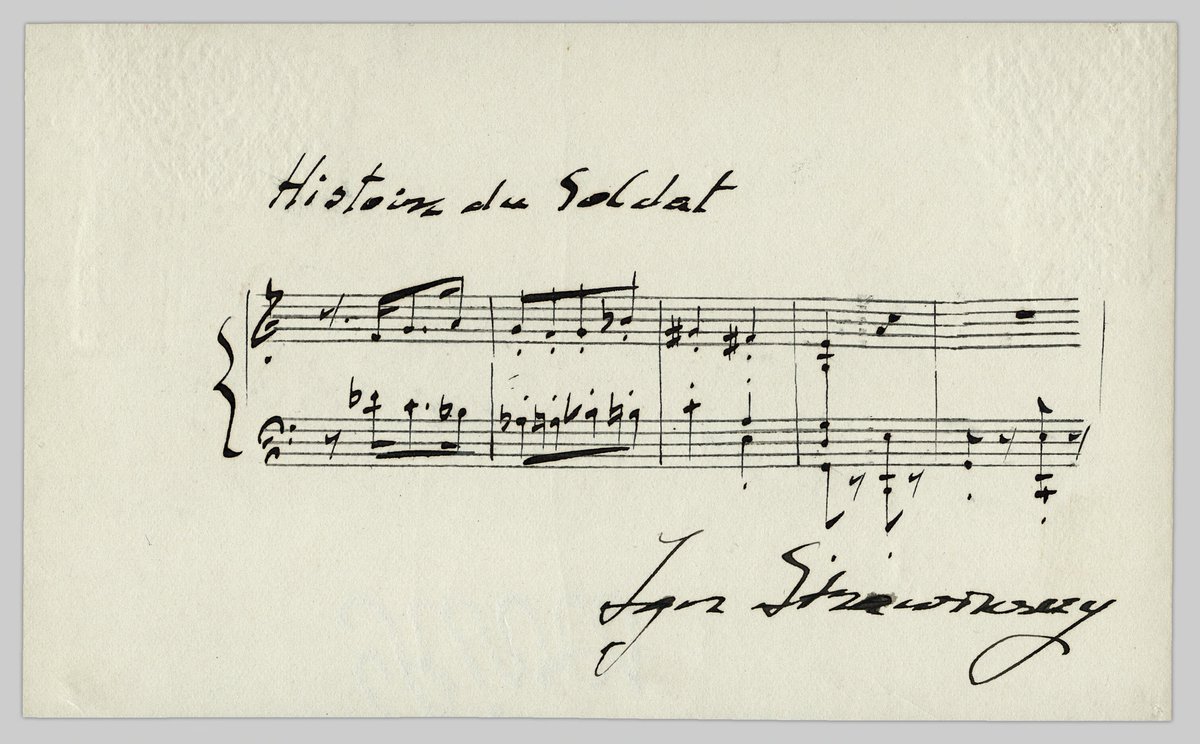 Histoire du Soldat
Igor Strawinsky